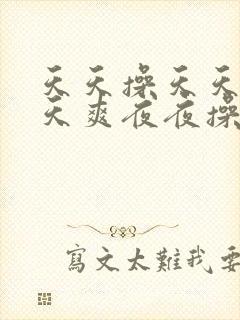 天天操天天
天爽夜夜操
寫文太難我要